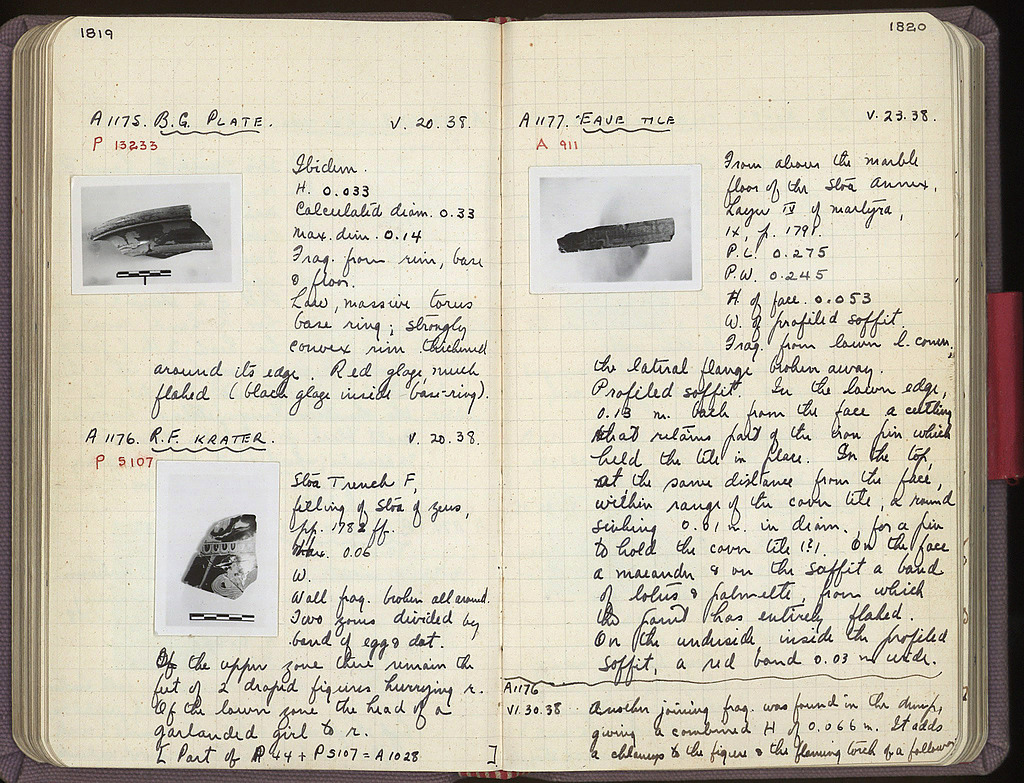 1819
A 1175. B.G. PLATE. V. 20. 38.
P 13233
Ibidem.
H. 0.033
Calculated diam. 0.33
Max. dim. 0.14
Frag. from rim, base
& floor.
Low, massive torus
base ring; strongly
convex rim thickened
around its edge. Red glaze, much
flaked (black glaze inside base-ring).
A 1176. R.F. KRATER. V. 20.38.
P 5107
Stoa Trench F,
filling of Stoa of Zeus,
pp. 1782 ff.
Max. 0.06
W.
Wall frag. broken all around.
Two zones divided by
band of egg & dot.
Of the upper zone there remain the
feet of 2 draped figures, hurrying r.
Of the lower zone the head of a
garlanded girl to r.
[ Part of P 44 + P 5107 = A 1028 ]
1820
A 1177. EAVE TILE V. 23.38.
A 911
From above the marble
floor of the Stoa Annex,
Layer IV of martyra,
IX, p. 1791.
P.L. 0.275
P.W. 0.245
H. of face. 0.053
W. of profiled soffit
Frag. from lower l. corner,
the lateral flange broken away.
Profiled soffit. In the lower edge,
0.13 m. back from the face a cutting
that retains part of the iron pin which
held the tile in place. In the top,
at the same distance from the face,
within range of the cover tile, a round
sinking 0.01 m. in diam., for a pin
to hold the cover tile (?). On the face
a maeander & on the soffit a band
of lotus & palmette, from which
the paint has entirely flaked.
On the underside inside the profiled
soffit, a red band 0.03 m wide.
A1176
VI.30.38 Another joining frag. was found in the dump,
giving a combined H of 0.066 m. It adds
a chlamys to the figure & the flaming torch of a follower